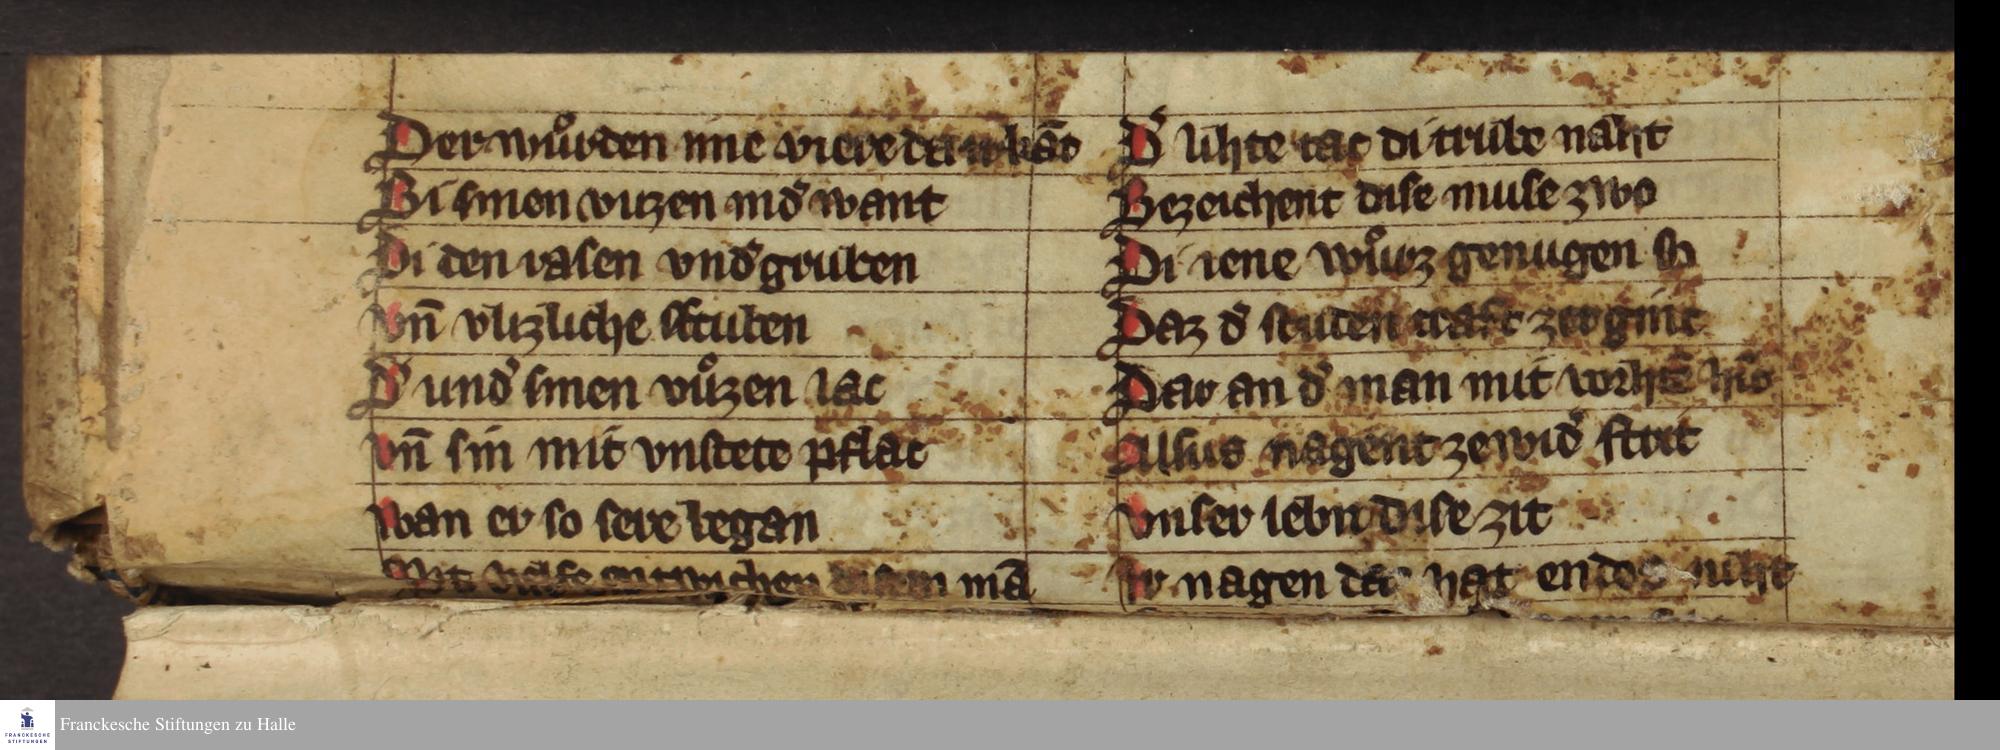 Der wuͦrden ime viere da irkāt
Bi sinen vuzen indͤ want
Di den rasen vndͤgruben
vn̄ vlizliche schuben
Dͤ undͤ sinen vuͦzen lac
vn̄ sin mit vnstete pflac
wan er so sere began
Mit entwichen disem mā
Dͤ lihte tac di trube naht
Bezeichent dise muse zwo
Di iene wuͦrz genugen so
Daz dͤ studen craft zergint
Dar an dͤ man mit vorhtē
Alsus nagent zewidͤ strit
vnser lebn dise zit
Ir nagen daz hat endes niht
Franckesche Stiftungen zu Halle
FRANCKESCHE
STIFTUNGEN